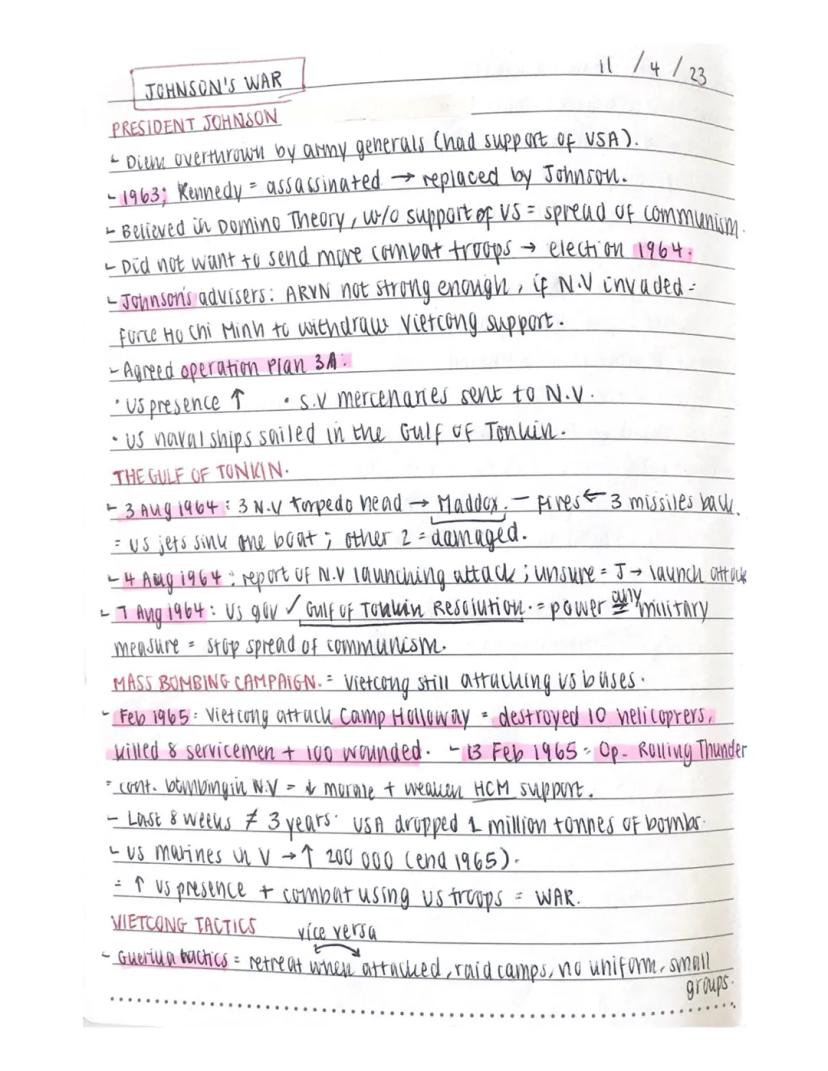 11 / 4 / 23
JOHNSON'S WAR
PRESIDENT JOHNSON
- Diem overthrown by army generals (had support of USA).
- 1963; Kennedy = assassinated → replaced by Johnson.
- Believed in Domino Theory, w/o support of US = spread of communism.
- Did not want to send more combat troops → election 1964.
- Johnson's advisers: ARVN not strong enough, if N.V invaded =
force Ho Chi Minh to withdraw Vietcong support.
- Agreed operation Plan 3A:
• US presence ↑ • S.V mercenaries sent to N.V.
• US naval ships sailed in the Gulf of Tonkin.
THE GULF OF TONKIN.
- 3 Aug 1964: 3 N.V torpedo head → Maddox. - fires ← 3 missiles back.
= US jets sink one boat; other 2 = damaged.
- 4 Aug 1964: report of N.V launching attack; unsure = J → launch attack
- 7 Aug 1964: US gov ✓ Gulf of Tonkin Resolution. = power = any military
measure = stop spread of communism.
MASS BOMBING CAMPAIGN. = Vietcong still attacking US bases.
- Feb 1965: Vietcong attack Camp Holloway = destroyed 10 helicopters,
killed 8 servicemen + 100 wounded. - 13 Feb 1965 = Op. Rolling Thunder
= cont. bombing in N.V = ↓ morale + weaken HCM support.
- Last 8 weeks ≠ 3 years. USA dropped 1 million tonnes of bombs.
- US marines in V → ↑ 200 000 (end 1965).
= ↑ US presence + combat using US troops = WAR.
VIETCONG TACTICS
vice versa
- Guerilla tactics = retreat when attacked, raid camps, no uniform, small
groups.